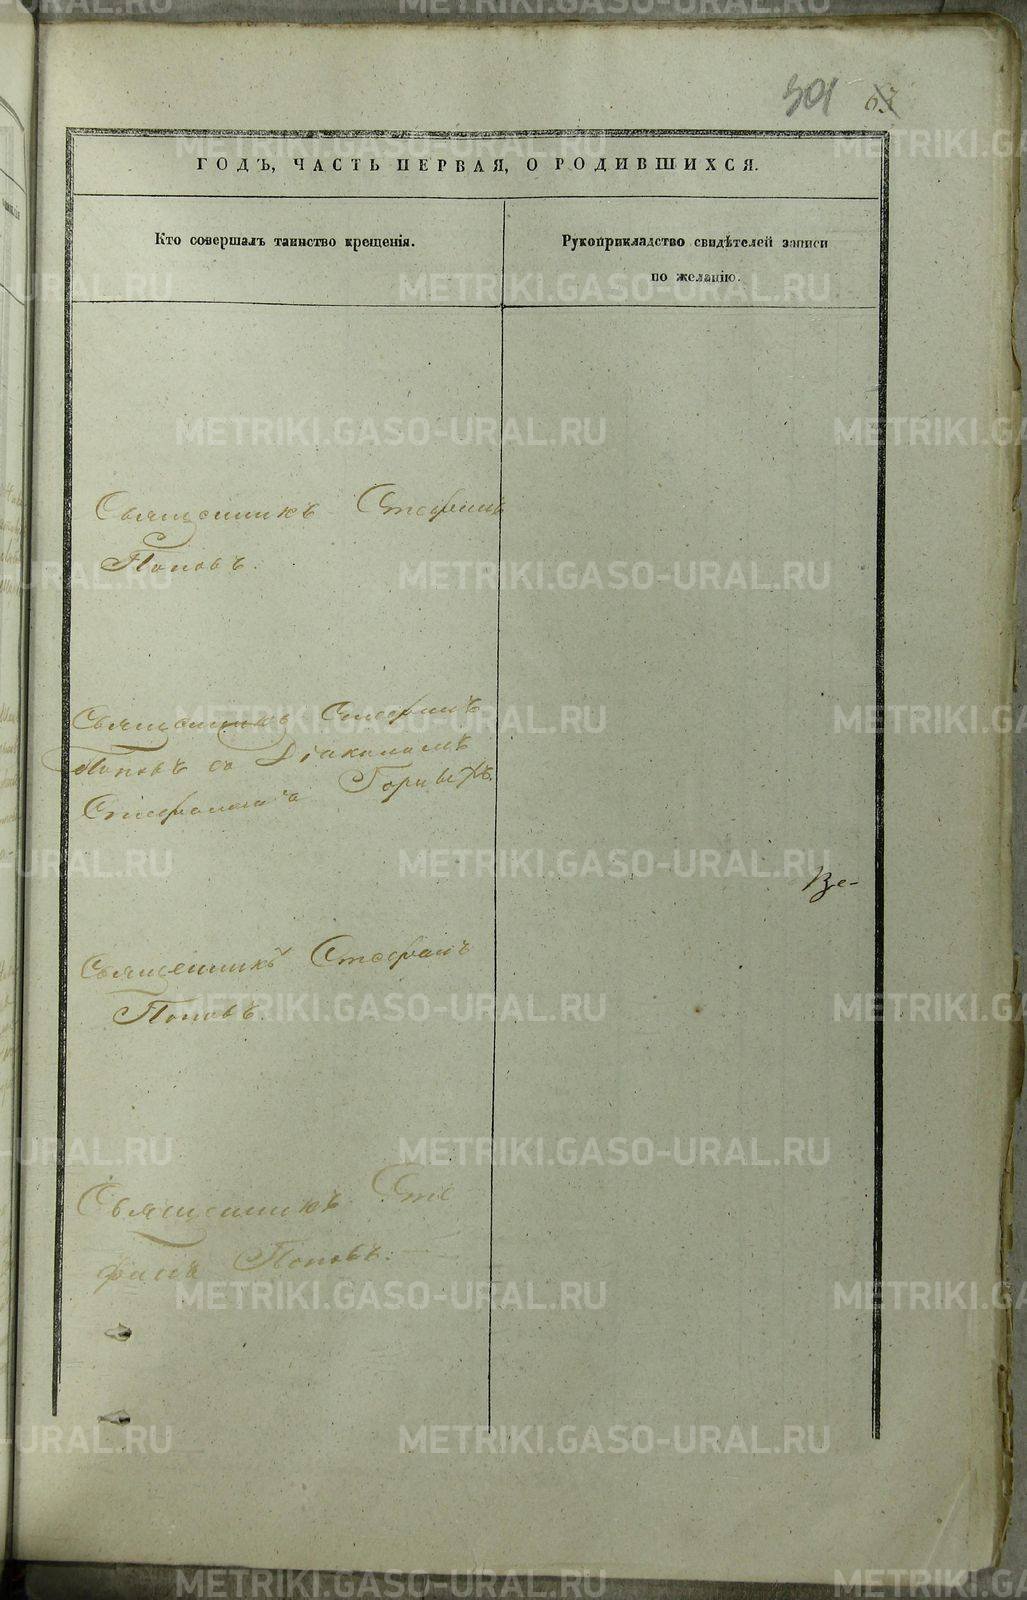 301 67
ГОДЪ, ЧАСТЬ ПЕРВАЯ, О РОДИВШИХСЯ.
Кто совершалъ таинство крещенія.
Рукоприкладство свидѣтелей записи
по желанію.
Священникъ Стефанъ
Поповъ.
Священникъ Стефанъ
Поповъ со Діакономъ
Стефаномъ
Священникъ Стефанъ
Поповъ.
Священникъ Сте
фанъ Поповъ.
METRIKI.GASO-URAL.RU